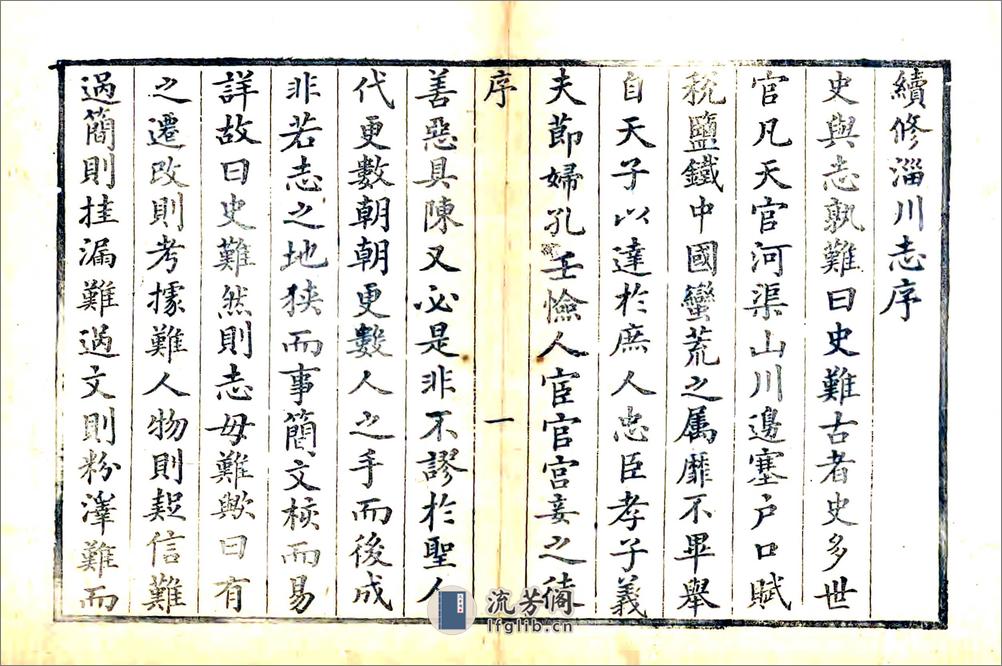 續修淄川志序
史與志孰難曰史難古者史多世
官凡天官河渠山川邊塞戶口賦
稅鹽鐵中國蠻荒之属靡不畢舉
自天子以達於庶人忠臣孝子義
夫節婦孔壬憸人宦官宮妾之徒
序 一
善惡具陳又必是非不謬於聖人
代更數朝朝更數人之手而後成
非若志之地狹而事簡文核而易
詳故曰史難然則志毋難歟曰有
之遷改則考據難人物則契信難
過簡則挂漏難過文則粉澤難而
流芳阁
lfglib.cn